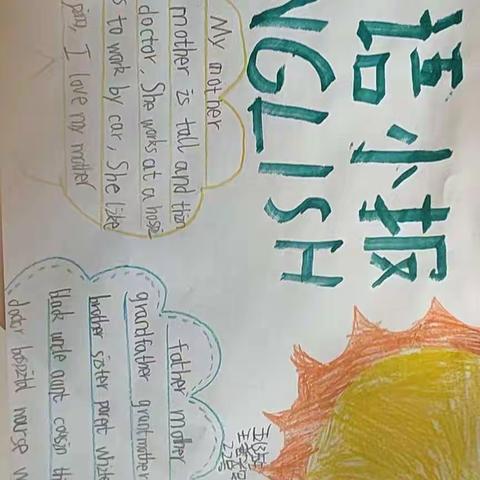 语小报
NGLISH
My mother
mother is tall and thin
doctor. She works at a hospi
s to work by car, She like
I love my mother
father mother
grandfather grantmother
brother sister parent white
black uncle aunt cousin th
doctor nourse w